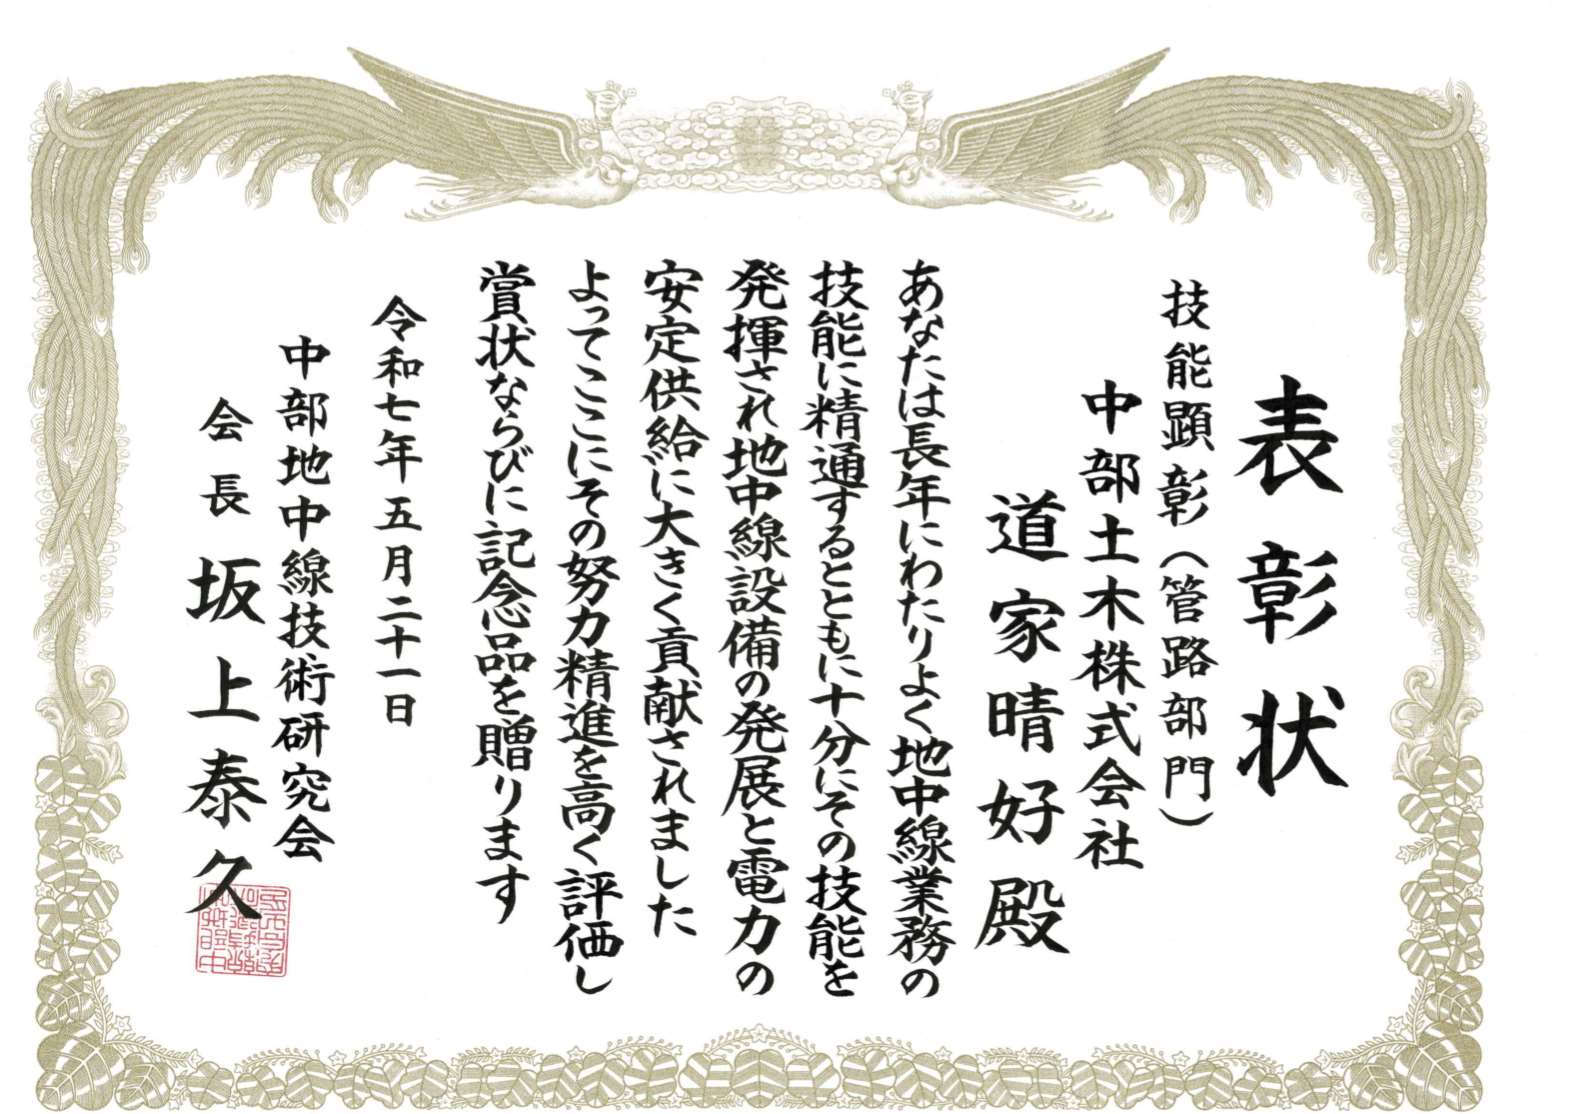 表彰状
技能顕彰（管路部門）
中部土木株式会社
道家晴好殿
あなたは長年にわたりよく地中線業務の
技能に精通するとともに十分にその技能を
発揮され地中線設備の発展と電力の
安定供給に大きく貢献されました
よってここにその努力精進を高く評価し
賞状ならびに記念品を贈ります
令和七年五月二十一日
中部地中線技術研究会
会長 坂上泰久